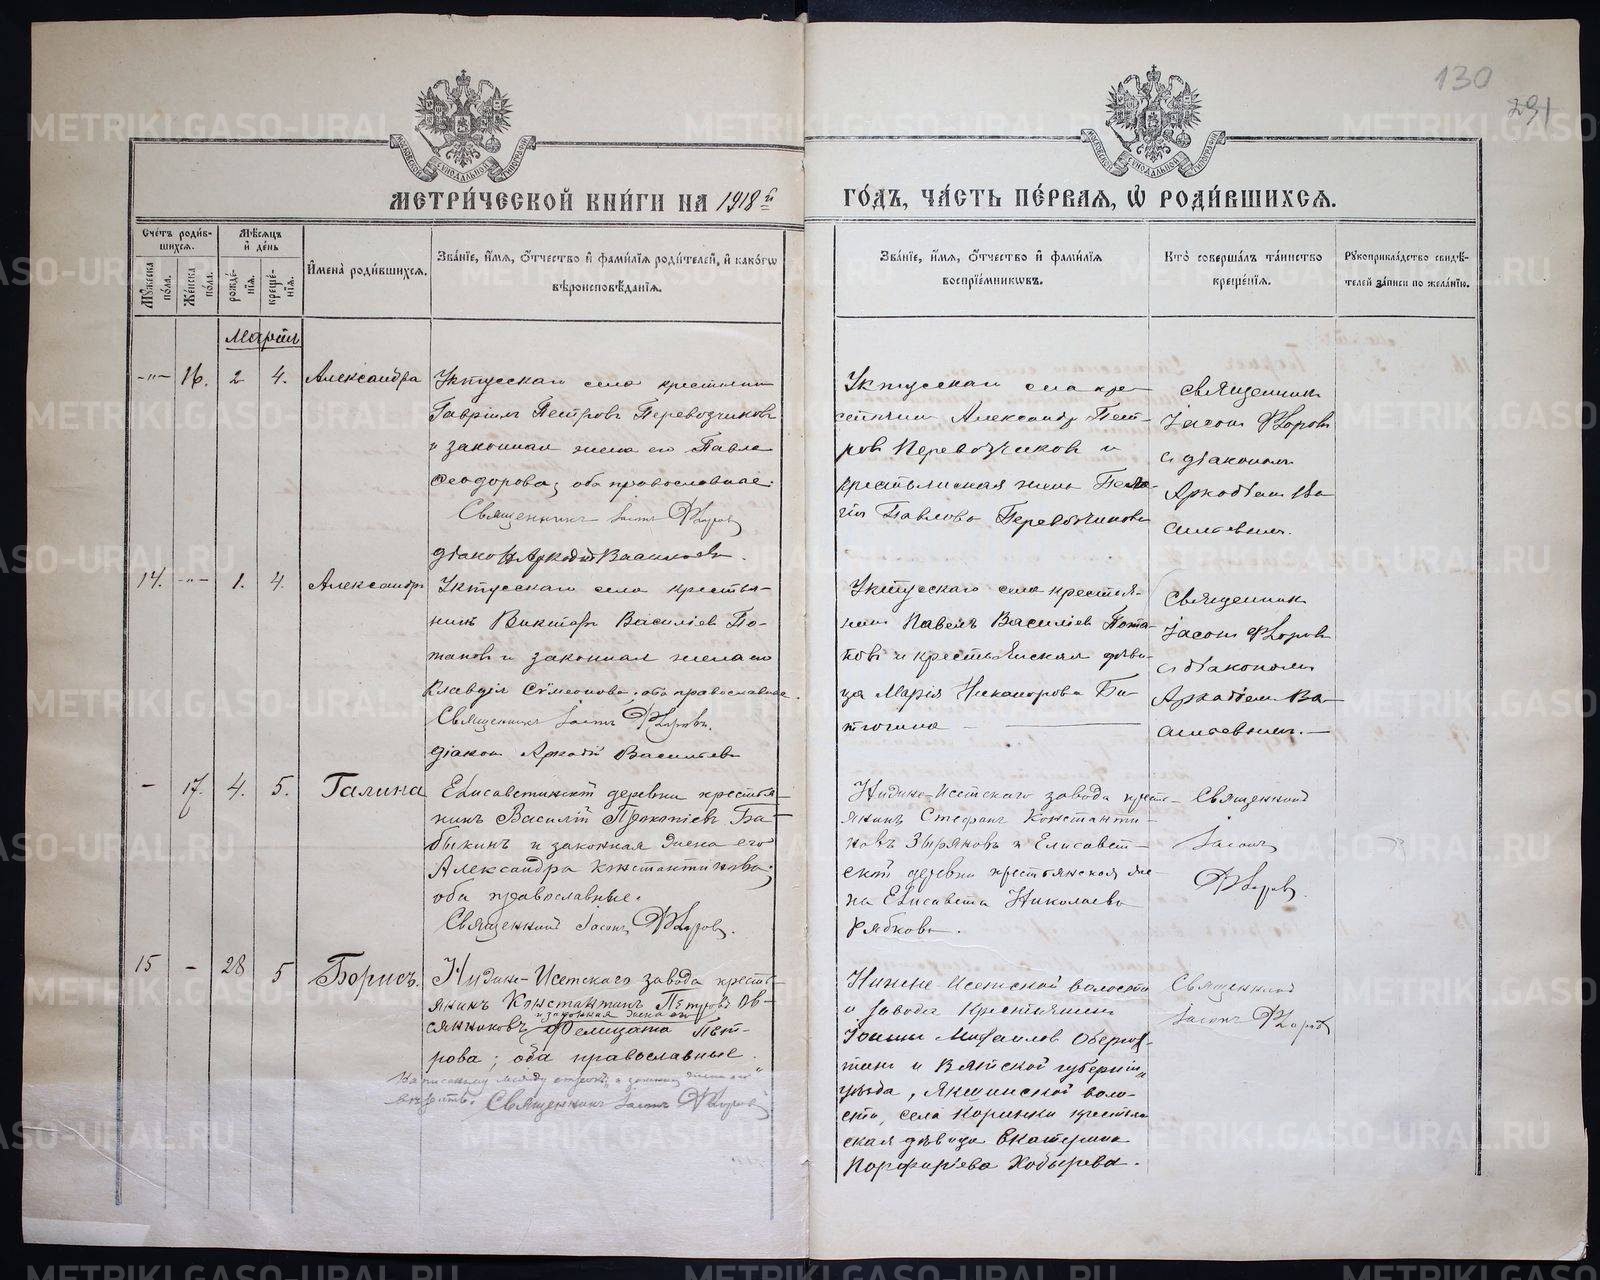 130
291
МЕТРИ́ЧЕСКОЙ КНИ́ГИ НА 1918й
ГО́ДЪ, ЧА́СТЬ ПЕ́РВАЯ, Ѡ РОДИ́ВШИХСЯ.
Сче́тъ роди́в-
шихся.
Мѣ́сяцъ
и де́нь
Му́жеска
по́ла.
Же́нска
по́ла.
рожде́-
нія.
креще́-
нія.
Имена̀ роди́вшихся.
Зва́ніе, и́мя, о́тчество и фами́лія роди́телей, и како́гѡ
вѣроисповѣ́данія.
Зва́ніе, и́мя, о́тчество и фами́лія
воспріе́мниковъ.
Кто̀ соверша́лъ та́инство
креще́нія.
Рукоприкла́дство свидѣ́-
телей за́писи по жела́нію.
Мартъ
-"- 16. 2 4. Александра
Уктусскаго села крестьянин
Гавріилъ Петровъ Перевозчиковъ
и законная жена его Павла
Ѳеодорова; оба православные.
Священникъ Іасонъ Флоровъ
діаконъ Аркадій Васильевъ.
Уктусскаго села кре-
стьянин Александръ Пет-
ровъ Перевозчиковъ и
крестьянская жена Пела-
гія Павлова Перевозчикова
Священник
Іасонъ Флоровъ
с діакономъ
Аркадіем Ва
сильевымъ.
14. -"- 1. 4. Александръ
Уктусскаго села крестья-
нинъ Викторъ Василіевъ По-
таповъ и законная жена его
Клавдія Симеонова, оба православные.
Священникъ Іасонъ Флоровъ.
діаконъ Аркадій Васильевъ
Уктусскаго села крестья-
нинъ Павелъ Василіевъ Пота-
повъ и крестьянская дѣви-
ца Марія Никанорова Ба-
тюгина
Священник
Іасонъ Флоровъ
с діакономъ
Аркадіем Ва-
сильевымъ.
- 17. 4. 5. Галина
Елисаветинской деревни крестья-
нинъ Василій Прокопіевъ Ба-
быкинъ и законная жена его
Александра Константинова;
оба православные.
Священникъ Іасонъ Флоровъ.
Нижне-Исетскаго завода крест-
янинъ Стефанъ Константи-
новъ Зыряновъ и Елисавет-
ской деревни крестьянская же-
на Елисавета Николаева
Рябкова.
Священникъ
Іасонъ
Флоровъ.
15 - 28 5 Борисъ.
Нижне-Исетскаго завода кресть-
янинъ Константинъ Петровъ Ов-
и законная жена его
сянниковъ Фелицата Пет-
рова; оба православные.
Написанному между строкъ "и законная жена его"
вѣрить. Священникъ Іасонъ Флоровъ
Нижне-Исетской волости
и завода крестьянинъ
Іоаннъ Михаиловъ
и Вятской губерніи
уѣзда, воло-
сти, села крестьян
ская дѣвица Екатерина
Порфирьева Хобырева.
Священникъ
Іасонъ Флоровъ
METRIKI.GASO-URAL.RU